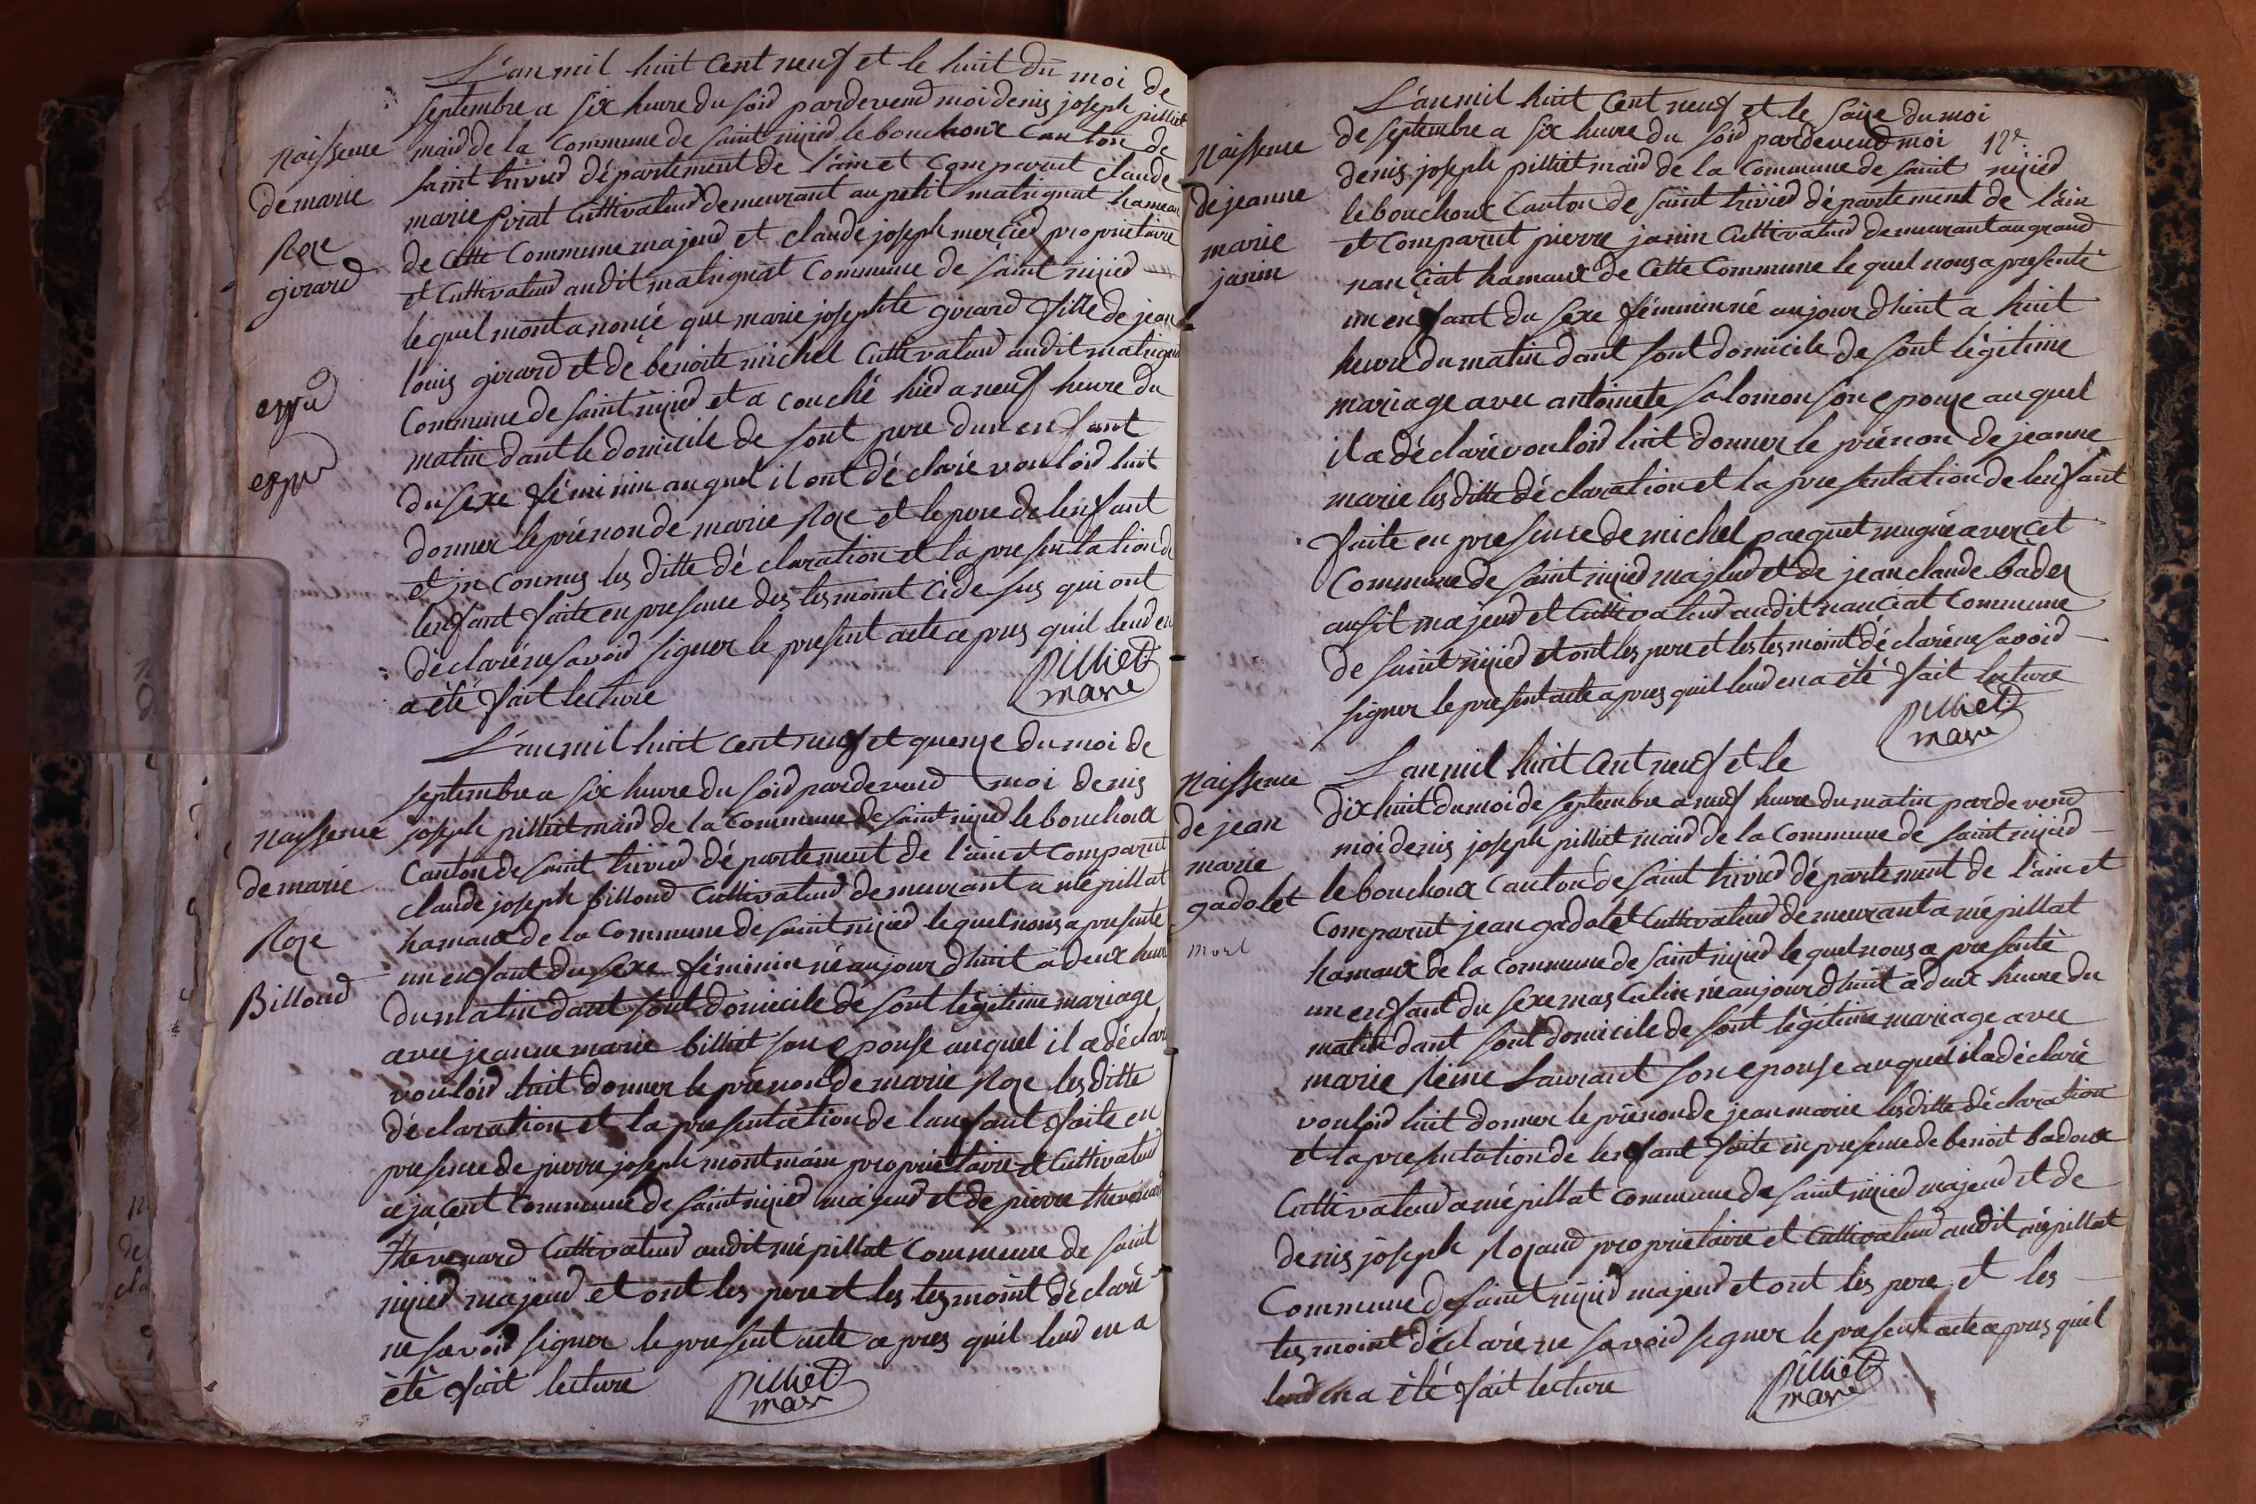 L'an mil huit cent neuf et le huit du moi de
septembre a six heure du soid pardevend moi denis joseph pilliet
maid de la Commune de saint nizied le bouchoux Canton de
saint trivied département de l'ain et Comparut claude
marie pirat Cultivateud demeurant au petit matrignat hameau
de Cette Commune majeud et claude joseph mercied proprietaire
et Cultivateud audit matrignat Commune de saint nizied
lequel mont anoncé que marie josephte girard fille de jean
louis girard et de benoite michel Cultivateud audit matrignat
Commune de saint nizied et a couché hied a neuf heure du
matin dant le domicile de sont pere dun enfant
du sexe féminin auquel il ont déclaré vouloid luit
donner le prénon de marie Roze et le pere de lenfant
et in connus les ditte déclaration et la presentation de
lenfant faite en presence des tesmoint cide sus qui ont
déclaré ne savoid signer le present acte apres quil leud en
a été fait lecture
pilliet
mare
Naissence
de marie
Roze
girard
L'an mil huit cent neuf et quenze du moi de
septembre a six heure du soid pardevend moi denis
joseph pilliet maid de la Commune de saint nizied le bouchoux
Canton de saint trivied département de l'ain et Comparut
claude joseph billoud Cultivateud demeurant a mépillat
hamaux de la Commune de saint nizied lequel nous a presenté
un enfant du sexe féminin né aujourdhuit a deux heure
du matin dant sont domicile de sont légitime mariage
avec jeanne marie billiet son epouse auquel il a déclaré
vouloid luit donner le prénon de marie Roze les ditte
déclaration et la presentation de lanfant faite en
presence de pierre joseph montmain proprietaire et Cultivateud
a jacent Commune de saint nizied majeud et de pierre
thévenard Cultivateud audit mépillat Commune de saint
nizied majeud et ont les pere et les tesmoint déclaré
ne savoid signer le present acte apres quil leud en a
été fait lecture
pilliet
mare
Naissence
de marie
Roze
Billoud
L'an mil huit cent neuf et le saize du moi
de septembre a six heure du soid pardevend moi
12e
denis joseph pilliet maid de la Commune de saint nizied
le bouchoux Canton de saint trivied département de l'ain
et Comparut pierre janin Cultivateud demeurant au grand
nanciat hamaux de Cette Commune lequel nous a presenté
un enfant du sexe féminin né aujourdhuit a huit
heure du matin dant sont domicile de sont légitime
mariage avec antoinete salomon son epouze auquel
il a déclaré vouloid luit donner le prénon de jeanne
marie les ditte déclaration et la presentation de lenfant
faite en presence de michel pacquet
Commune de saint nizied majeud et de jean claude badez
ausit majeud et Cultivateud audit nanciat Commune
de saint nizied et ont les pere et les tesmoint déclaré ne savoid
signer le present acte apres quil leud en a été fait lecture
pilliet
mare
Naissence
de jeanne
marie
janin
L'an mil huit cent neuf et le
dix huit du moi de septembre a neuf heure du matin pardevend
moi denis joseph pilliet maid de la Commune de saint nizied
le bouchoux Canton de saint trivied département de l'ain et
Comparut jean gadolet Cultivateud demeurant a mépillat
hamaux de la Commune de saint nizied lequel nous a presenté
un enfant du sexe masculin né aujourdhuit a deux heure du
matin dant sont domicile de sont légitime mariage avec
marie Reine Laurant son epouse auquel il a déclaré
vouloid luit donner le prénon de jean marie les ditte déclaration
et la presentation de lenfant faite en presence de benoit badoux
Cultivateud a mépillat Commune de saint nizied majeud et de
denis joseph Rozand proprietaire et Cultivateud audit mépillat
Commune de saint nizied majeud et ont les pere et les
tesmoint déclaré ne savoid signer le present acte apres quil
leud en a été fait lecture
pilliet
mare
Naissence
de jean
marie
gadolet
mort